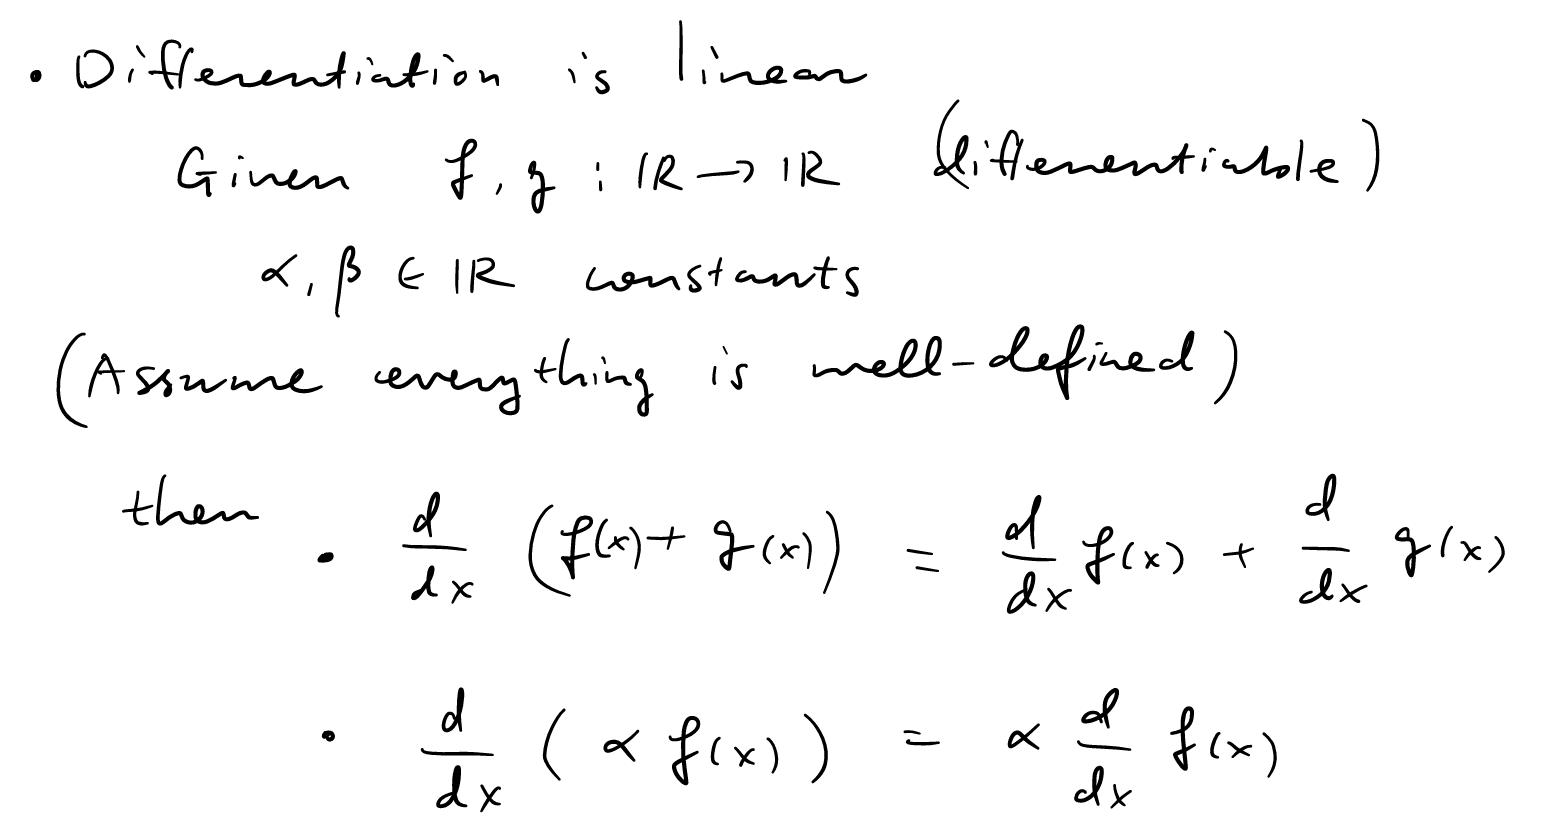 • Differentiation is linear
Given f, g : ℝ → ℝ (differentiable)
α, β ∈ ℝ constants
(Assume everything is well-defined)
then • d/dx (f(x) + g(x)) = d/dx f(x) + d/dx g(x)
• d/dx (α f(x)) = α d/dx f(x)